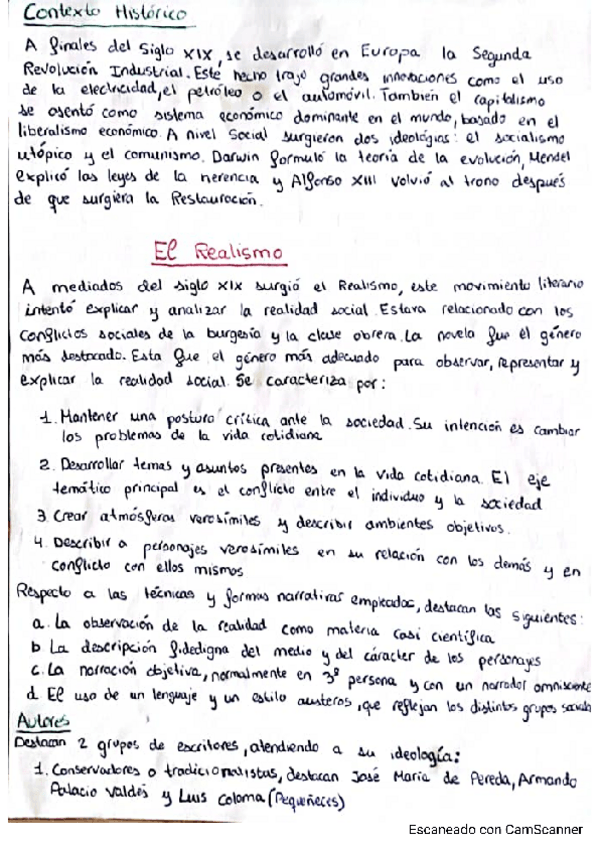 Contexto Histórico
A finales del Siglo XIX, se desarrolló en Europa la Segunda
Revolución Industrial. Este hecho trajo grandes innovaciones como el uso
de la electricidad, el petróleo o el automóvil. También el capitalismo
se asentó como sistema económico dominante en el mundo, basado en el
liberalismo económico. A nivel Social surgieron dos ideologías: el socialismo
utópico y el comunismo. Darwin formuló la teoría de la evolución, Mendel
explicó las leyes de la herencia y Alfonso XIII volvió al trono después
de que surgiera la Restauración.
El Realismo
A mediados del siglo XIX surgió el Realismo, este movimiento literario
intentó explicar y analizar la realidad social. Estava relacionado con los
conflictos sociales de la burgesía y la clase obrera. La novela fue el género
más destacado. Esta fue el género más adecuado para observar, representar y
explicar la realidad social. Se caracteriza por:
1. Mantener una postura crítica ante la sociedad. Su intención es cambiar
los problemas de la vida cotidiana
2. Desarrollar temas y asuntos presentes en la vida cotidiana. El eje
temático principal es el conflicto entre el individuo y la sociedad
3. Crear atmósferas verosímiles y describir ambientes objetivos.
4. Describir a personajes verosímiles en su relación con los demás y en
conflicto con ellos mismos
Respecto a las técnicas y formas narrativas empleadas, destacan las siguientes:
a. La observación de la realidad como materia casi científica
b La descripción fidedigna del medio y del cáracter de los personajes
c. La narración objetiva, normalmente en 3ª persona y con un narrador omnisciente
d. El uso de un lenguaje y un estilo austeros, que reflejan los distintos grupos sociales
Autores
Destacan 2 grupos de escritores, atendiendo a su ideología:
1. Conservadores o tradicionalistas, destacan José María de Pereda, Armando
Palacio Valdés y Luis Coloma (Pequeñeces)
Escaneado con CamScanner